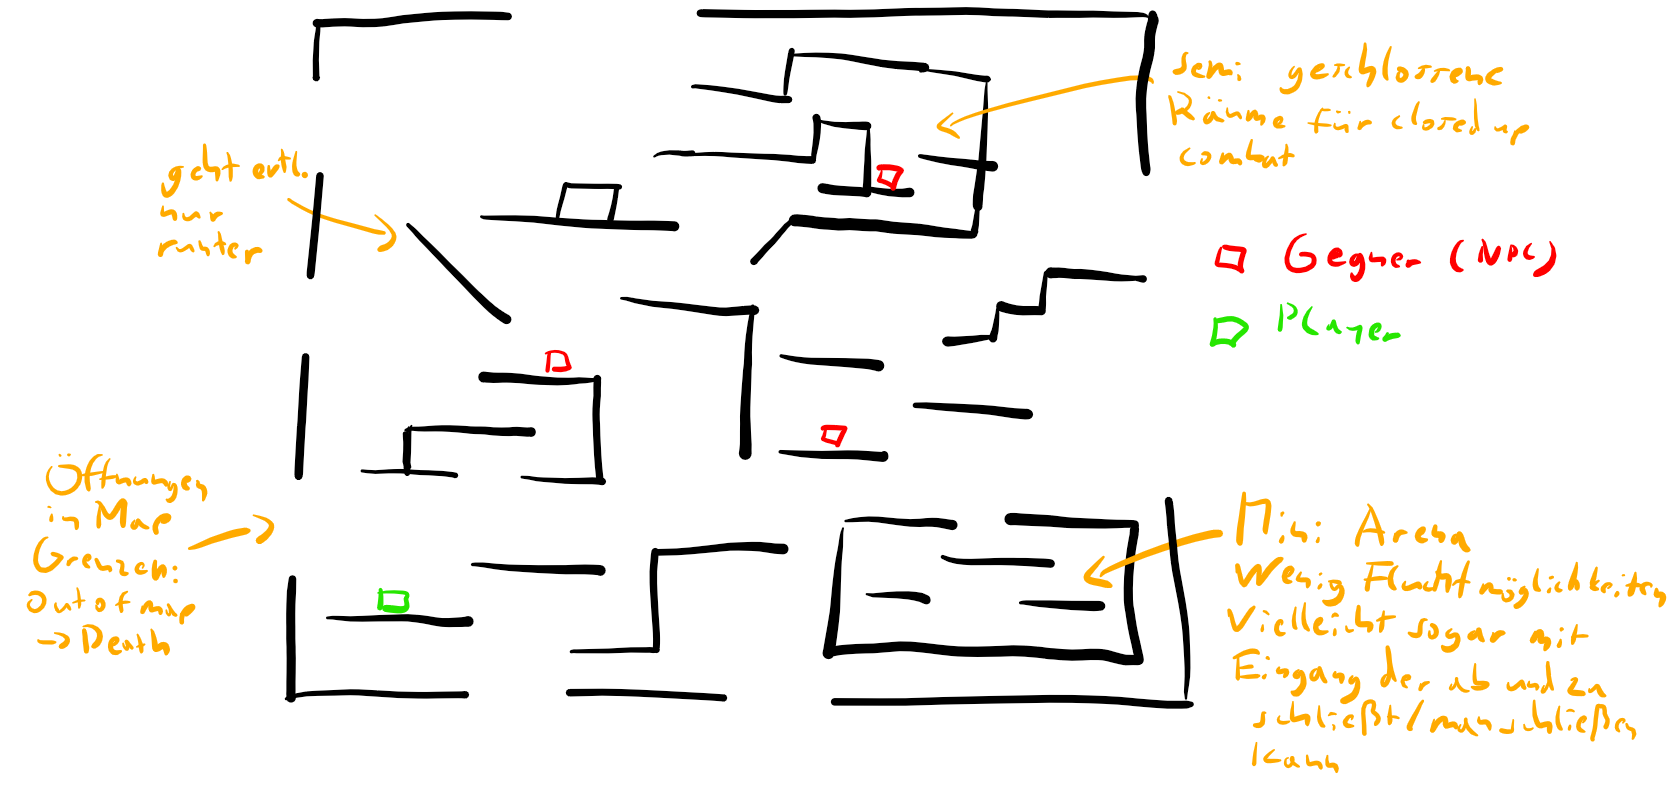 semi geschlossene
Räume für closed up
combat
geht evtl.
nur
runter
Gegner (NPC)
Player
Öffnungen
in Map
Grenzen:
Out of map
-> Death
Mini Arena
Wenig Fluchtmöglichkeiten
Vielleicht sogar mit
Eingang der ab und zu
schließt/man schließen
kann